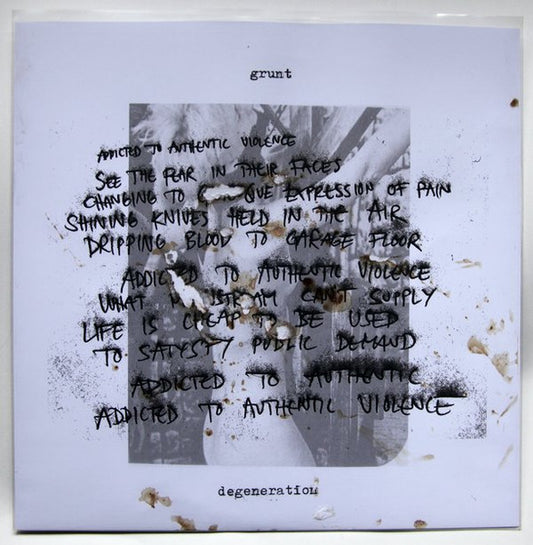 grunt
ADDICTED TO AUTHENTIC VIOLENCE
SEE THE FEAR IN THEIR FACES
CHANGING TO EXPRESSION OF PAIN
SHINING KNIVES HELD IN THE AIR
DRIPPING BLOOD TO GARAGE FLOOR
ADDICTED TO AUTHENTIC VIOLENCE
WHAT CAN'T SUPPLY
LIFE IS CHEAP TO BE USED
TO SATYSTY PUBLIC DEMAND
ADDICTED TO AUTHENTIC
ADDICTED TO AUTHENTIC VIOLENCE
degeneration